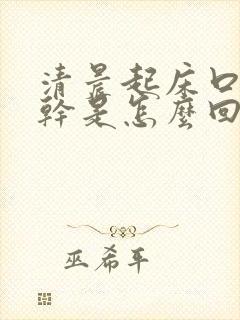 清晨起床口
幹是怎麼回
巫希平